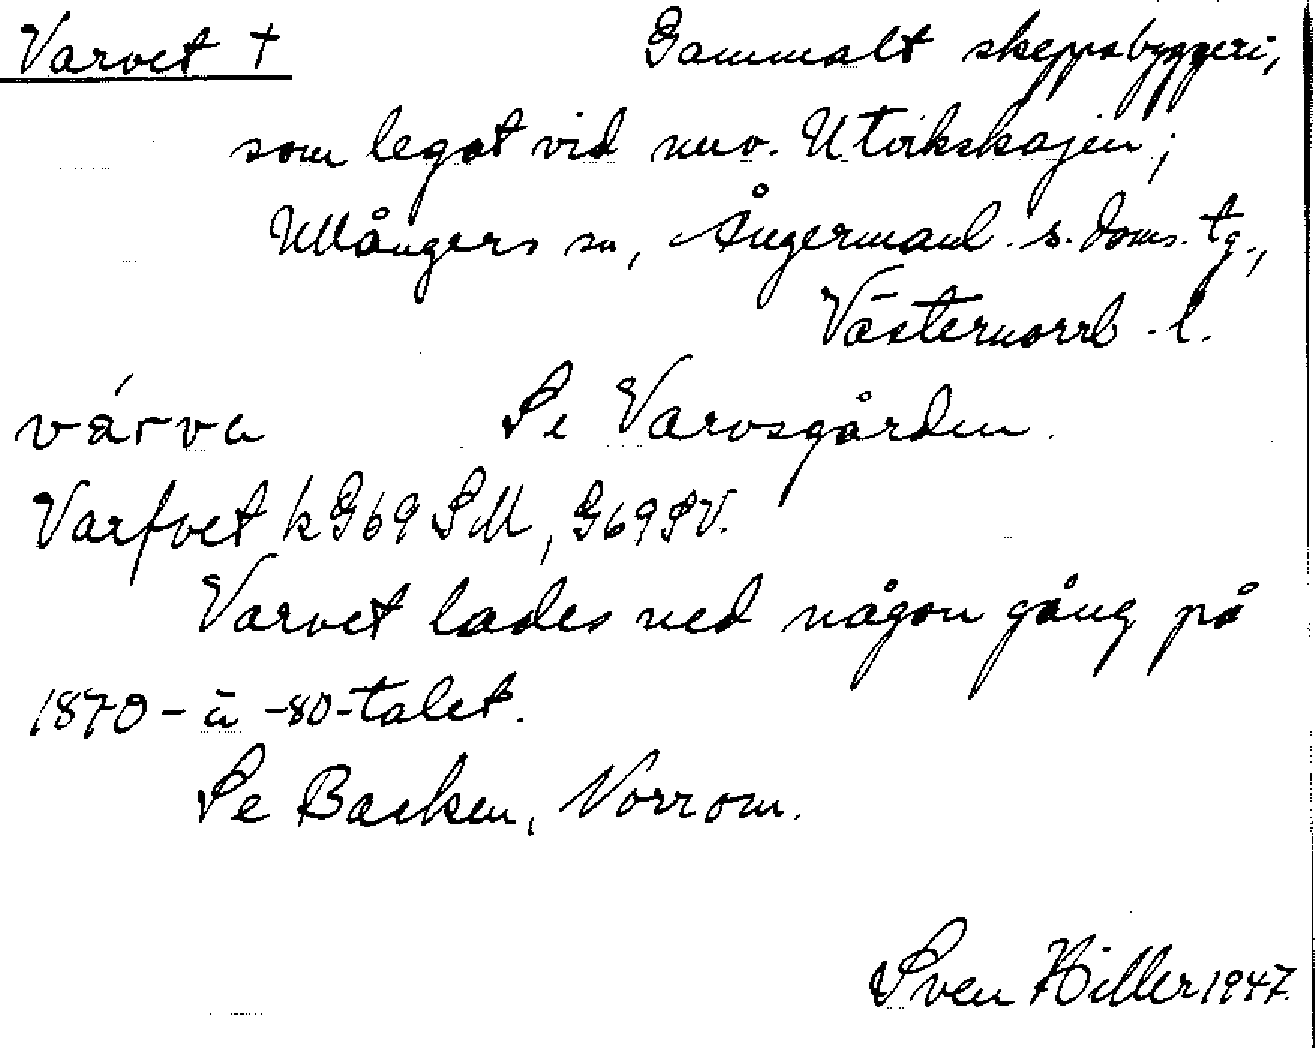 Varvet † Gammalt skeppsbyggeri,
som legat vid nuv. Utvikskajen;
Ullångers sn, Ångermanl. s. doms. tg.,
Västernorrl. l.
várva Se Varvsgården.
Varfvet k G69 SM, G69 SV.
Varvet lades ned någon gång på
1870- à -80-talet.
Se Backen, Norrom.
Sven Hiller 1947.